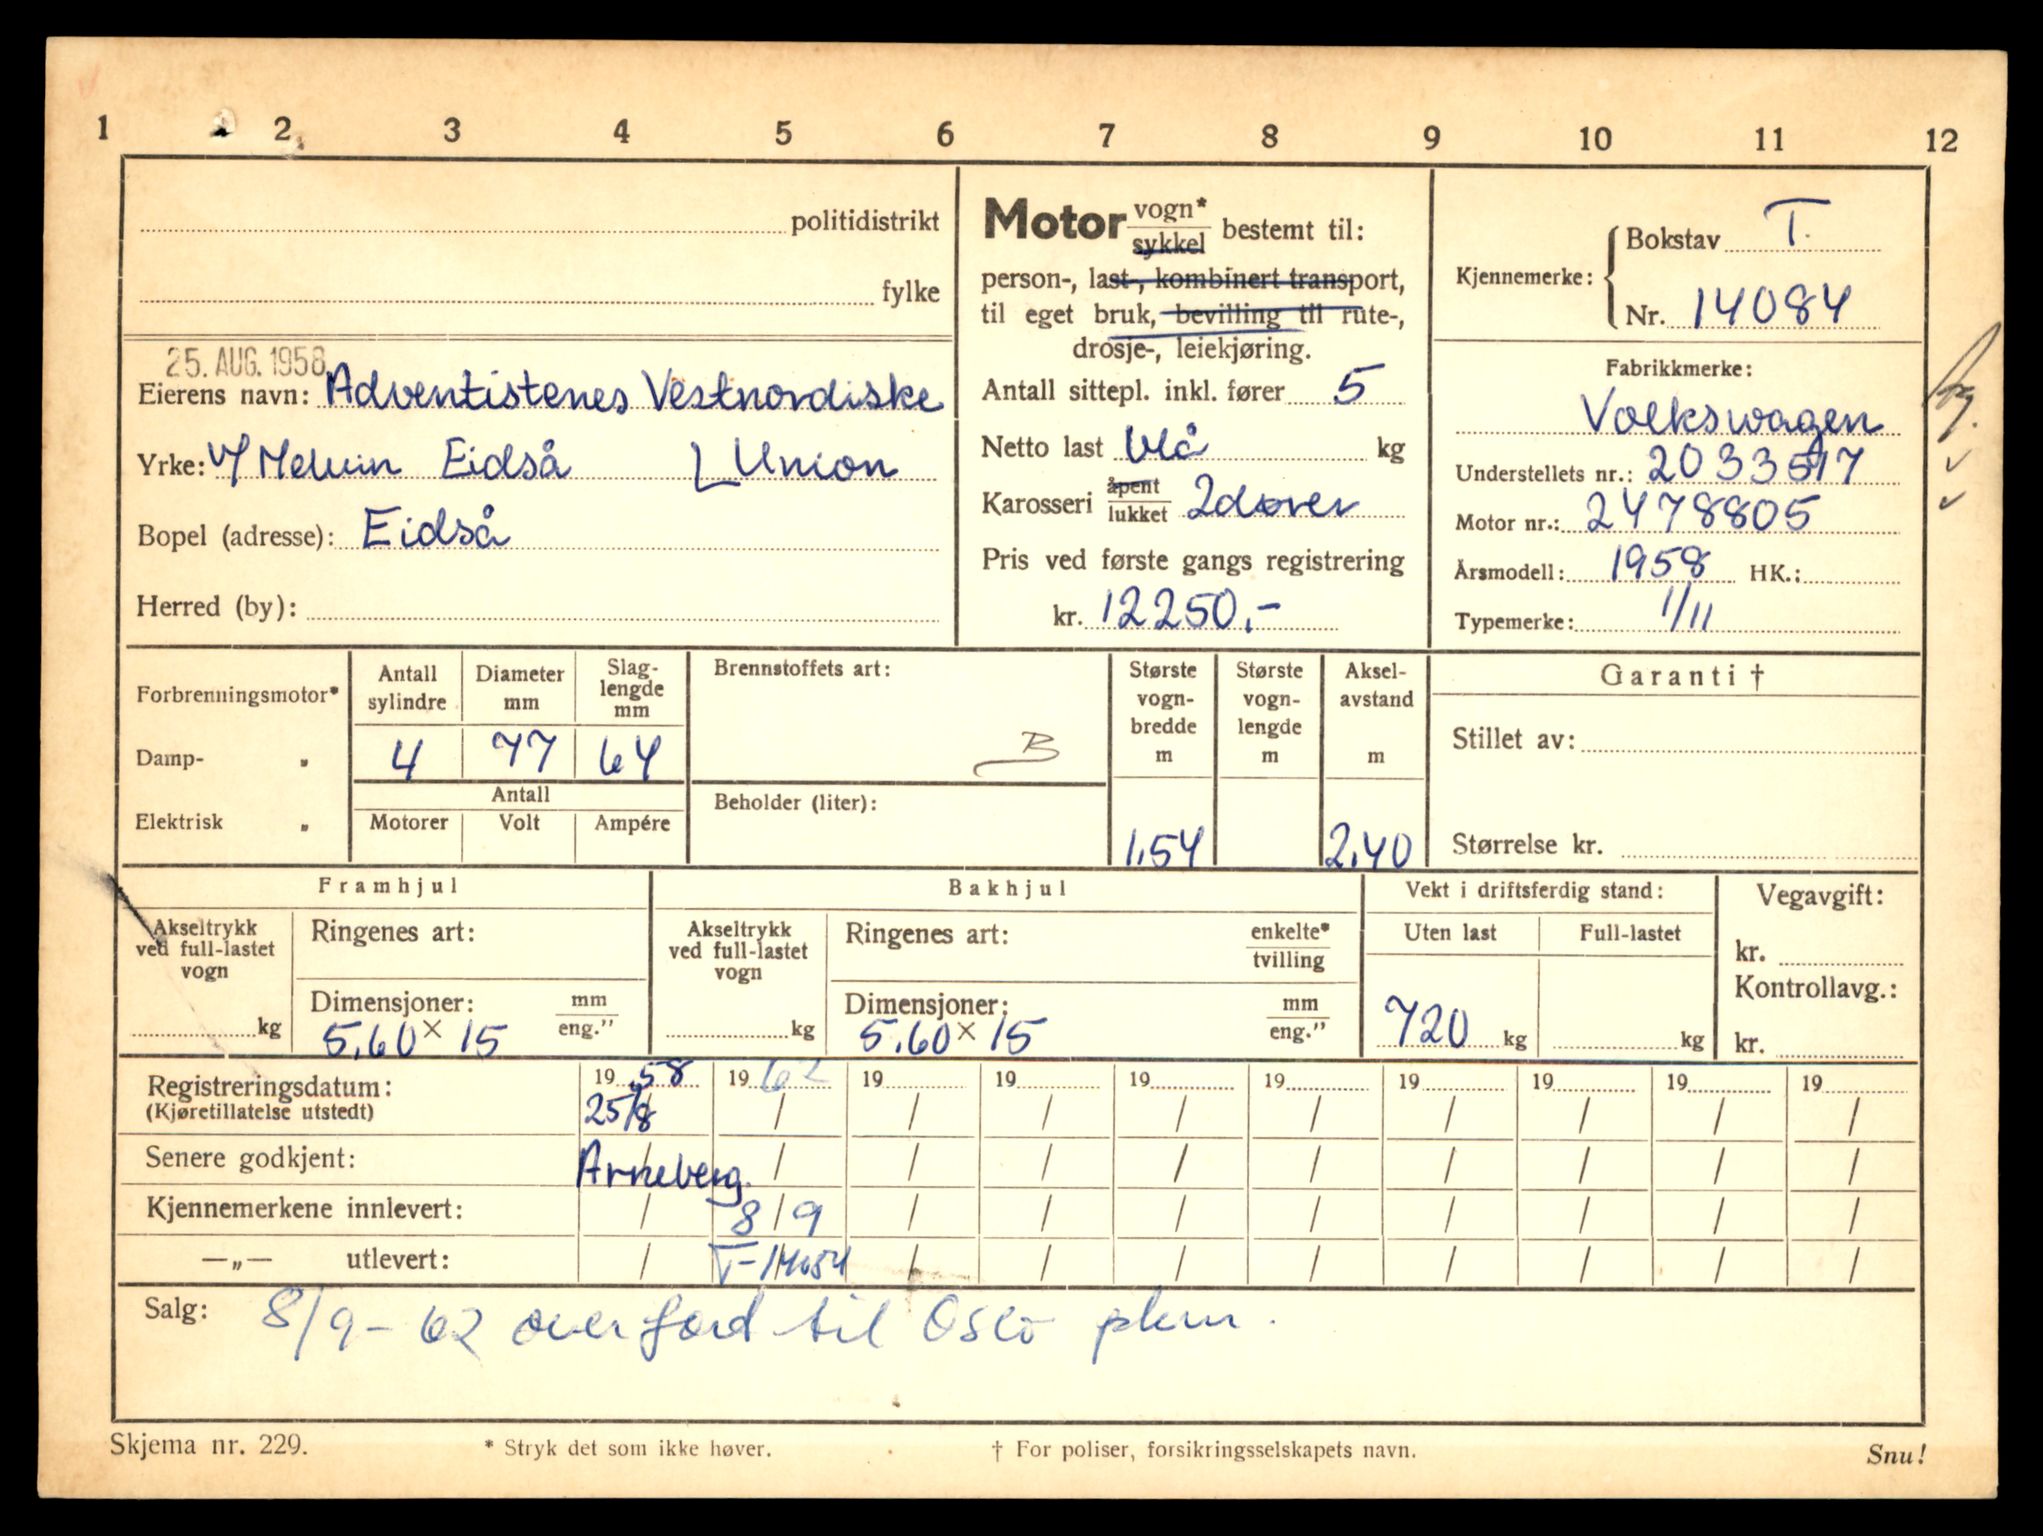 1 2 3 4 5 6 7 8 9 10 11 12
politidistrikt
fylke
25. AUG. 1958
Eierens navn: Adventistenes Vestnordiske
Yrke: v/ Melvin Eidså Union
Bopel (adresse): Eidså
Herred (by):
Motor vogn* sykkel bestemt til:
person-, last-, kombinert transport,
til eget bruk, bevilling til rute-,
drosje-, leiekjøring.
Antall sittepl. inkl. fører 5
Netto last blå kg
Karosseri åpent lukket 2dører
Pris ved første gangs registrering
kr. 12250,-
Kjennemerke: Bokstav T.
Nr. 14084
Fabrikkmerke:
Volkswagen
Understellets nr.: 2033517
Motor nr.: 2478805
Årsmodell: 1958 HK.:
Typemerke: 1/11
Forbrenningsmotor*
Damp- „
Elektrisk „
Antall sylindre
4
Diameter mm
77
Slag-lengde mm
64
Antall
Motorer Volt Ampére
Brennstoffets art:
B
Beholder (liter):
Største vogn-bredde m
1,54
Største vogn-lengde m
Aksel-avstand m
2,40
Garanti †
Stillet av:
Størrelse kr.
Framhjul
Akseltrykk ved full-lastet vogn
kg
Ringenes art:
Dimensjoner: mm eng.”
5,60 × 15
Bakhjul
Akseltrykk ved full-lastet vogn
kg
Ringenes art: enkelte* tvilling
Dimensjoner: mm eng.”
5.60 × 15
Vekt i driftsferdig stand:
Uten last Full-lastet
720 kg kg
Vegavgift:
kr.
Kontrollavg.:
kr.
Registreringsdatum: 19 58 19 62 19 19 19 19 19 19 19 19
(Kjøretillatelse utstedt) 25/8 / / / / / / / / /
Senere godkjent: Arneberg / / / / / / / / /
Kjennemerkene innlevert: / 8/9 / / / / / / / /
—„— utlevert: / T-14654 / / / / / / / /
Salg: 8/9-62 overførd til Oslo
Skjema nr. 229. * Stryk det som ikke høver. † For poliser, forsikringsselskapets navn. Snu!